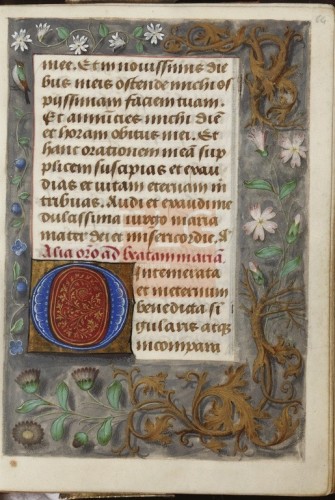 mee. Et in nouissimis die
bus meis ostende michi os
pijssimam faciem tuam.
Et annūcies michi diem
et horam obitus mei. Et
hanc orationem meā sup
plicem suscipias et exau
dias et uitam eternam m
tribuas. Audi et exaudi me
dulcissima uirgo maria
mater dei et misericordie. A
Alia oro ad beatam mariā.
O intemerata
et in eternum
benedicta si
gularis atq
incompara